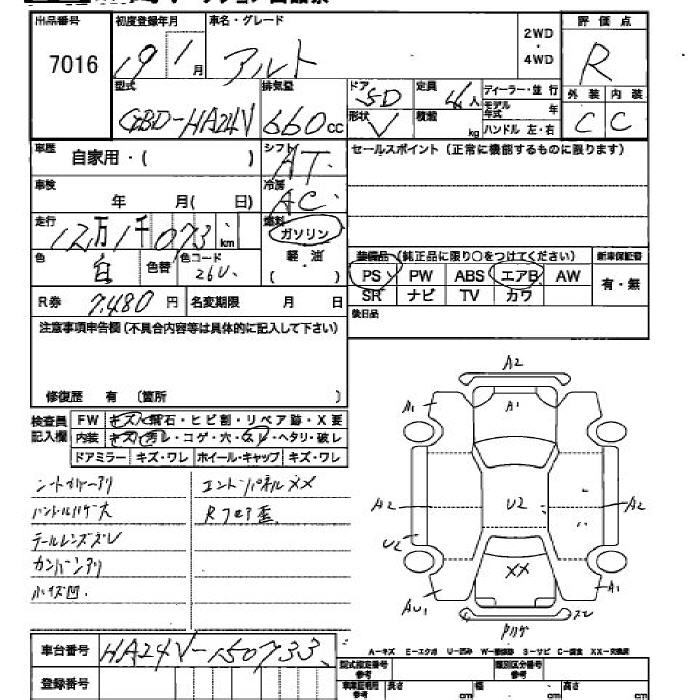 出品番号 初度登録年月 車名・グレード 2WD・4WD 評価点
7016 19年1月 アルト R
型式 排気量 ドア 5D 定員 4人 ディーラー・並行 外装 内装
GBD-HA24V 660cc 形状 V 積載 kg モデル年式 ハンドル 左・右 C C
車歴 自家用・( ) シフト AT セールスポイント(正常に機能するものに限ります)
車検 年 月( 日) 冷房 AC
走行 12万1千073km 燃料 ガソリン
色 白 色替 色コード 26U 軽油 ( ) 装備品(純正品に限り○をつけてください) 新車保証書
PS PW ABS エアB AW 有・無
R券 7,480円 名変期限 月 日 SR ナビ TV カワ
注意事項申告欄(不具合内容等は具体的に記入して下さい) 後日品
修復歴 有 (箇所 )
検査員記入欄 FW キズ・飛石・ヒビ割・リペア跡・X要
内装 キズ・汚レ・コゲ・穴・スレ・ヘタリ・破レ
ドアミラー キズ・ワレ ホイール・キャップ キズ・ワレ
A2
A1 A1
シートカバーアリ エンドパネルXX
ハンドルハゲ大
A2 U2 A2
テールレンズズレ
U2
カンバンアリ
XX
小キズ凹
AU1 A1
スレ
ハゲ
車台番号 HA24V-150733 A-キズ E-エクボ U-凹み W-補修跡 S-サビ C-腐食 XX-交換済
登録番号 型式指定番号参考 類別区分番号参考
車庫証明用参考 長さ cm 幅 cm 高さ cm